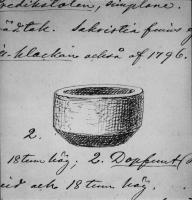 predikstolen, simplare.
Sakristia finnes
klockan också af 1796.
2.
18 tum hög; 2. Dopfunt
och 18 tum hög.